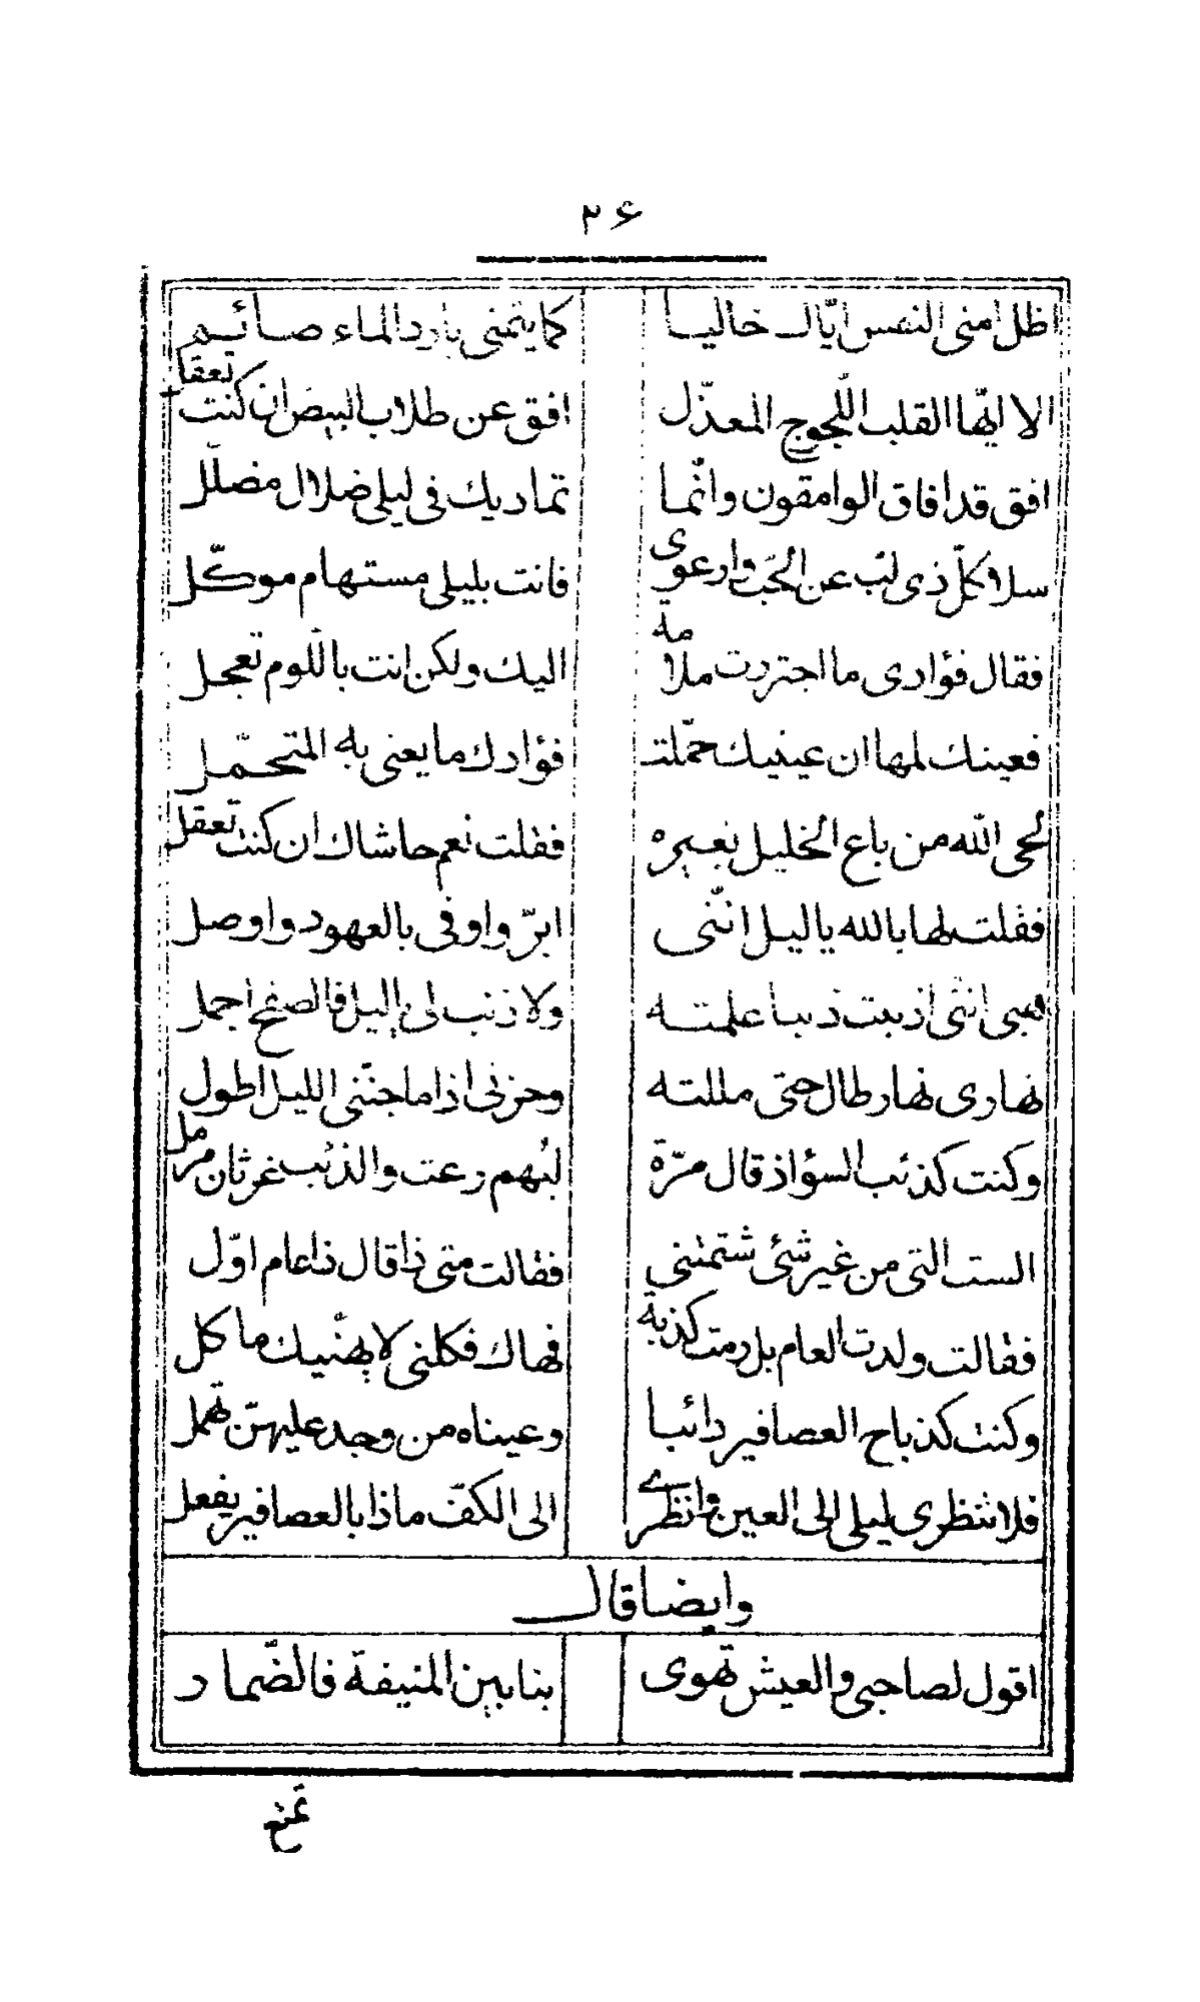 ۲۶
اظل امنى النفس ايّاك خاليا كما يتمنى بارد الماء صائم
الا ايّها القلب اللّجوج المعذّل افق عن طلاب البيض ان كنت تعقل
افق قد افاق الوامقون وانّما تماديك فى ليلى ضلال مضلّل
سلا كلّ ذى لبّ عن الحبّ وارعوى فانت بليلى مستهام موكّل
فقال فؤادى ما اجتررت ملامة اليك ولكن انت باللّوم تعجل
فعينك لمها ان عينيك حمّلت فؤادك ما يعنى به المتحمّل
لحى الله من باع الخليل بغيره فقلت نعم حاشاك ان كنت تعقل
فقلت لها بالله يا ليل انّنى ابرّ واوفى بالعهود واوصل
هبى انّنى اذنبت ذنبا علمته ولا ذنب لى يا ليل فالصفح اجمل
نهارى نهار طال حتى مللته وحزنى اذا ما جنّنى الليل اطول
وكنت كذئب السؤ اذ قال مرّة لبهم رعت والذئب غرثان مرمل
الست التى من غير شئ شتمتنى فقالت متى ذا قال ذا عام اوّل
فقالت ولدت العام بل رمت كذبة فهاك فكلنى لا يهنّيك ما كل
وكنت كذباح العصافير دائبا وعيناه من وجد عليهنّ تهمل
فلا تنظرى ليلى الى العين وانظرى الى الكفّ ماذا بالعصافير يفعل
وايضا قال
اقول لصاحبى والعيش تهوى بنا بين المنيفة فالضّمار
تمتع